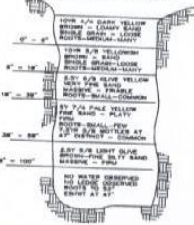 10YR 4/4 DARK YELLOW
BROWN - LOAMY SAND
SINGLE GRAIN - LOOSE
ROOTS-MEDIUM-MANY
0" - 8"
10YR 5/8 YELLOWISH
BROWN - SAND
SINGLE GRAIN-LOOSE
ROOTS-MEDIUM-MANY
8" - 18"
2.5Y 6/6 OLIVE YELLOW
VERY FINE SAND
MASSIVE - FRIABLE
ROOTS-SMALL-COMMON
18" - 38"
5Y 7/4 PALE YELLOW
FINE SAND - PLATY
FIRM
ROOTS-SMALL-FEW
7.5YR 5/8 MOTTLES AT
47" DISTINCT - COMMON
38" -
2.5Y 5/6 LIGHT OLIVE
BROWN-FINE SILTY SAND
MASSIVE - FIRM
- 100"
NO WATER OBSERVED
NO LEDGE OBSERVED
ROOTS TO 53"
ESHWT AT 47"